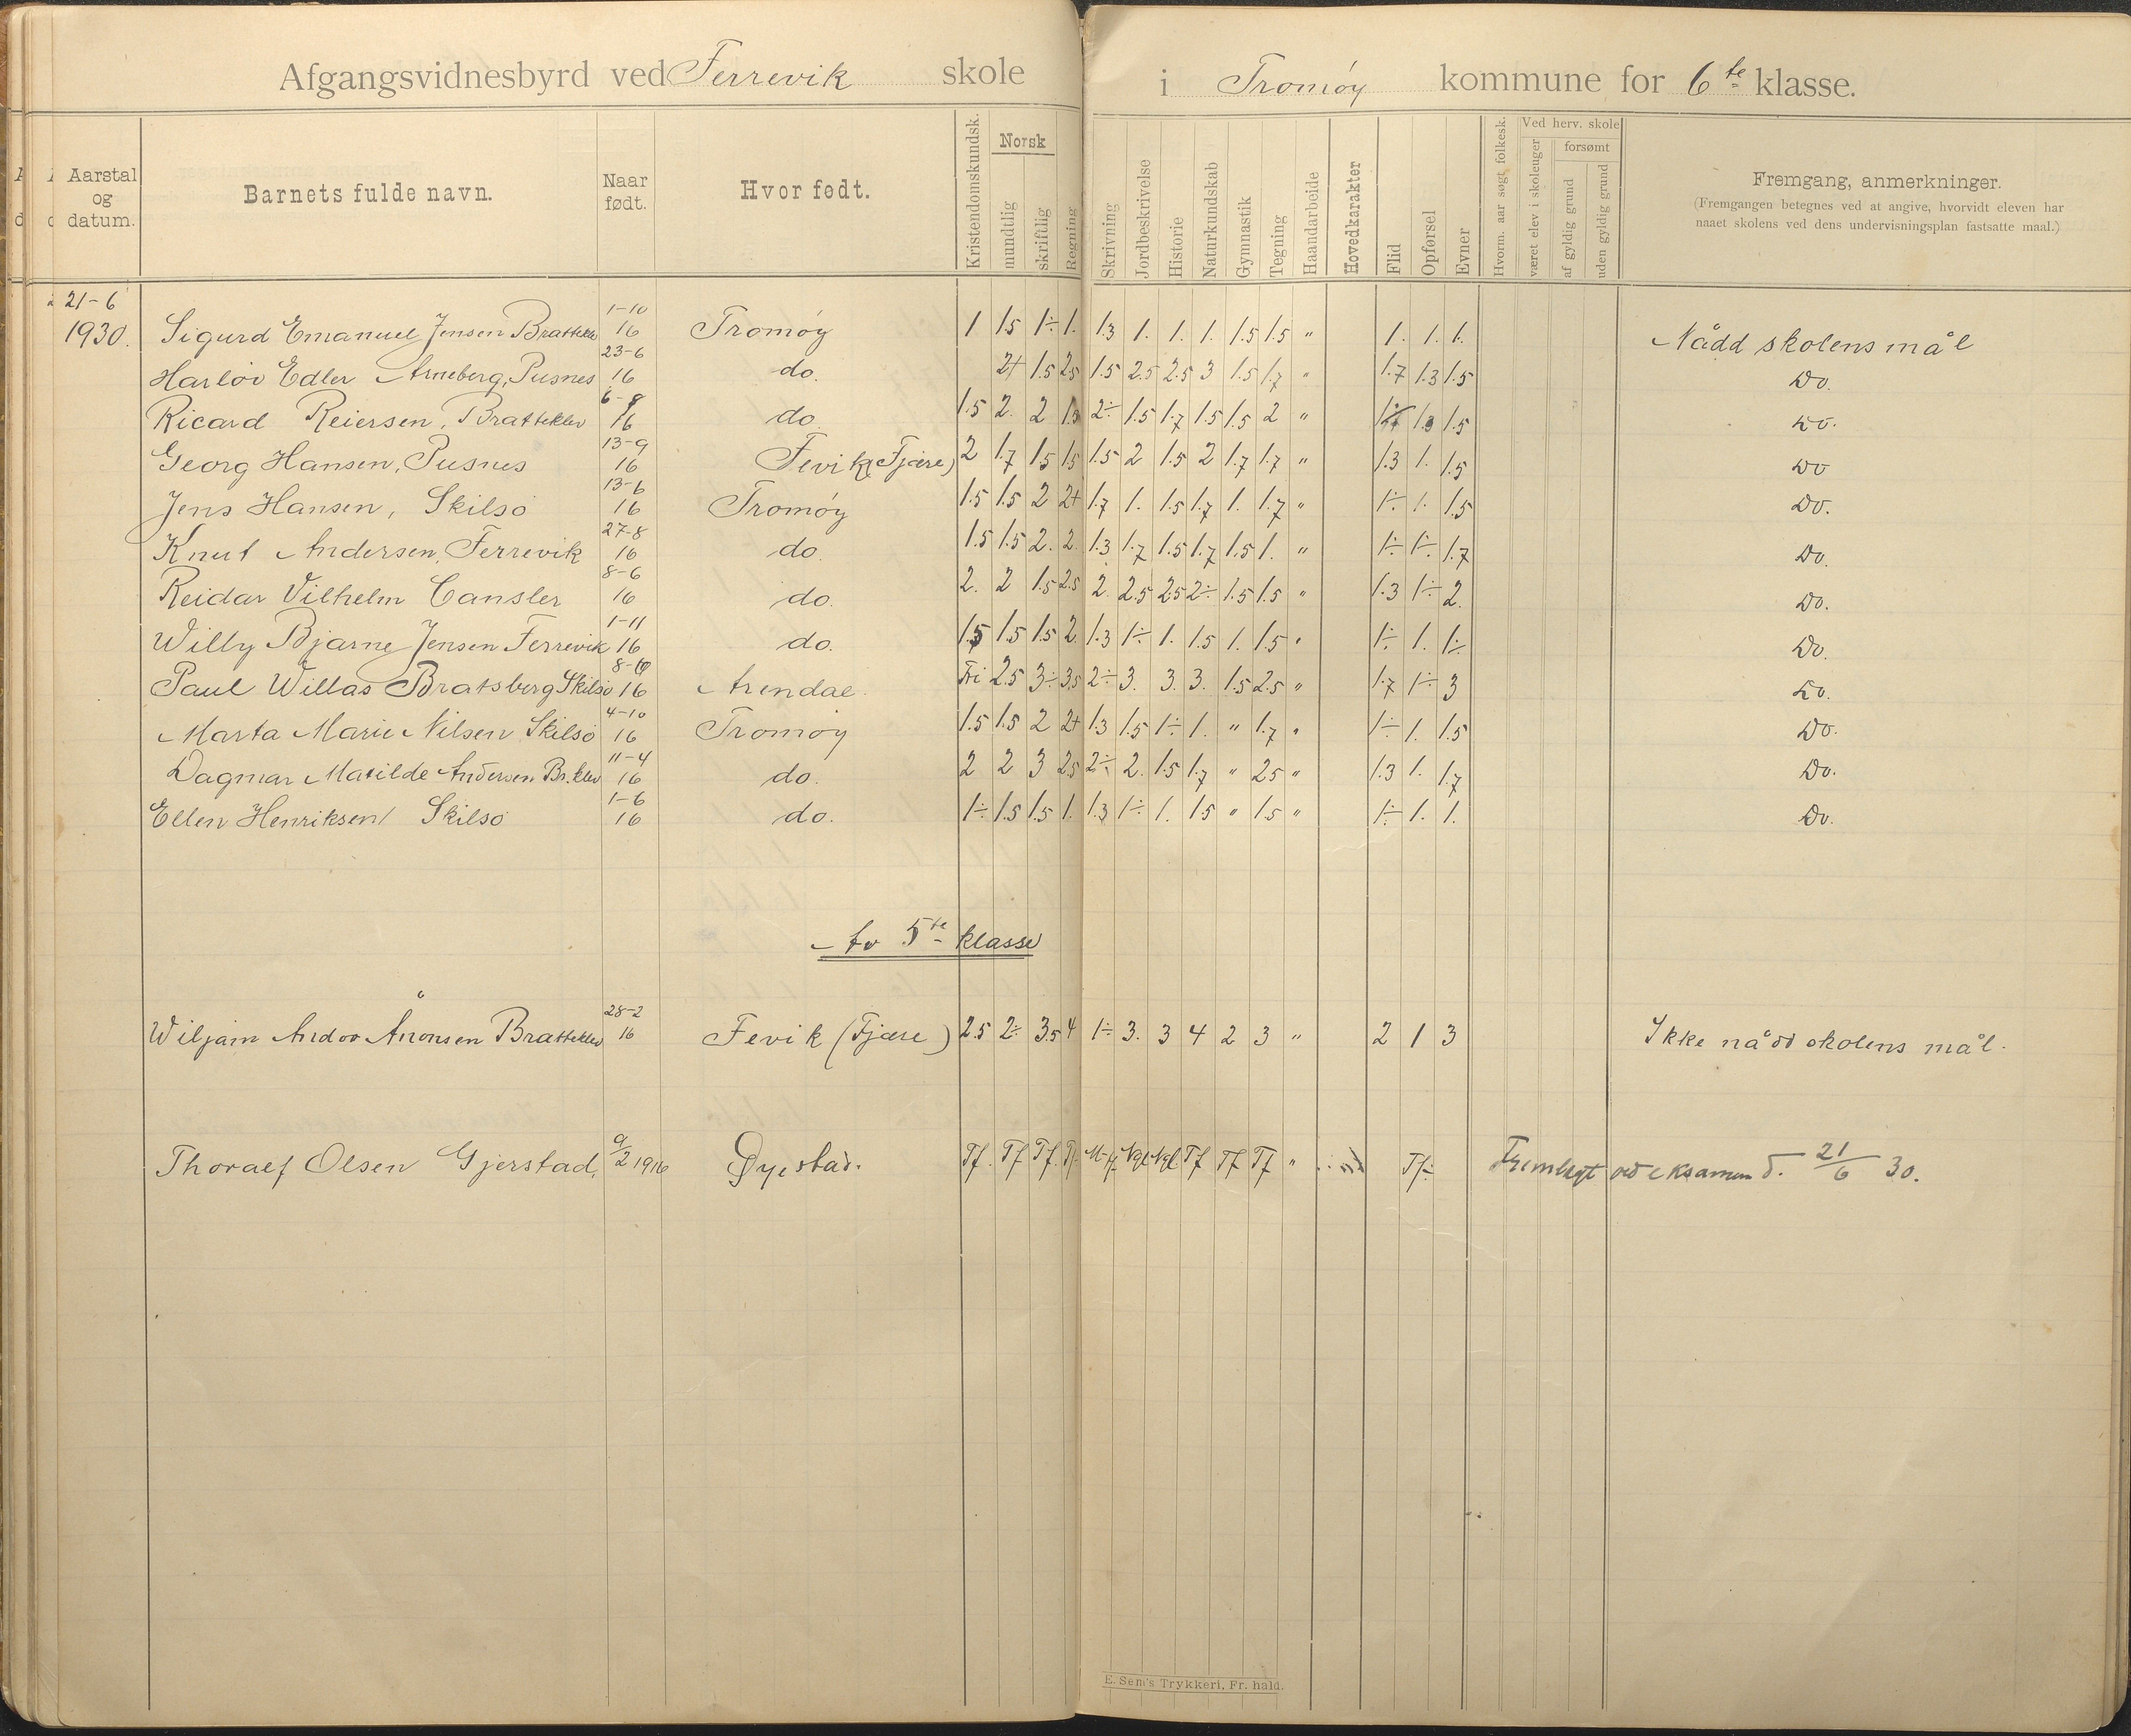 Afgangsvidnesbyrd ved Færrevik skole i Tromøy kommune for 6te klasse.
Aarstal og datum. Barnets fulde navn. Naar født. Hvor født. Kristendomskundsk. Norsk mundtlig skriftlig Regning Skrivning Jordbeskrivelse Historie Naturkundskab Gymnastik Tegning Haandarbeide Hovedkarakter Flid Opførsel Evner Hvorm. aar søgt folkesk. Ved herv. skole været elev i skoleuger forsømt af gyldig grund uden gyldig grund Fremgang, anmerkninger.
(Fremgangen betegnes ved at angive, hvorvidt eleven har
naaet skolens ved dens undervisningsplan fastsatte maal.)
21-6 1930. Sigurd Emanuel Jensen Bratteklev 1-10 16 Tromøy 1 1.5 1÷ 1. 1.3 1. 1. 1. 1.5 1.5 " 1. 1. 1. Nådd skolens mål
Harlov Edler Arneberg, Pusnes 23-6 16 do. 2+ 1.5 2.5 1.5 2.5 2.5 3 1.5 1.7 " 1.7 1.3 1.5 Do.
Ricard Reiersen, Bratteklev 16 do. 1.5 2. 2 1.5 2÷ 1.5 1.7 1.5 1.5 2 " 1.3 1.5 Do.
Georg Hansen, Pusnes 13-9 16 Fevik (Fjære) 2 1.7 1.5 1.5 1.5 2 1.5 2 1.7 1.7 " 1.3 1. 1.5 Do
Jens Hansen, Skilsø 13-6 16 Tromøy 1.5 1.5 2 2+ 1.7 1. 1.5 1.7 1. 1.7 " 1÷ 1. 1.5 Do.
Knut Andersen, Færrevik 27-8 16 do. 1.5 1.5 2. 2. 1.3 1.7 1.5 1.7 1.5 1. " 1÷ 1÷ 1.7 Do.
Reidar Vilhelm Cansler 8-6 16 do. 2. 2 1.5 2.5 2. 2.5 2.5 2÷ 1.5 1.5 " 1.3 1÷ 2. Do.
Willy Bjarne Jensen Færrevik 1-11 16 do. 1.5 1.5 1.5 2. 1.3 1÷ 1. 1.5 1. 1.5 " 1÷ 1. 1÷ Do.
Paul Willas Bratsberg Skilsø 8-10 16 Arendal. Fri 2.5 3÷ 3.5 2÷ 3. 3. 3. 1.5 2.5 " 1.7 1÷ 3 Do.
Marta Marie Nilsen Skilsø 4-10 16 Tromøy 1.5 1.5 2 2+ 1.3 1.5 1÷ 1. " 1.7 " 1÷ 1. 1.5 Do.
Dagmar Matilde Andersen Br.klev 11-4 16 do. 2 2 3 2.5 2÷ 2. 1.5 1.7 " 2.5 " 1.3 1. 1.7 Do.
Ellen Henriksen Skilsø 1-6 16 do. 1÷ 1.5 1.5 1. 1.3 1÷ 1. 1.5 " 1.5 " 1÷ 1. 1. Do.
Av 5te klasse
Wiljam Andor Ånonsen Bratteklev 28-2 16 Fevik (Fjære) 2.5 2÷ 3.5 4 1÷ 3. 3 4 2 3 " 2 1 3 Ikke nådd skolens mål.
Thoralf Olsen Gjerstad, 9/2 1916 Øyestad. Tf. Tf Tf. Tf. Tf Tf Tf " Tf÷ Fremlagt ved eksamen d. 21/6 30.
E. Sem's Trykkeri, Fr. hald.